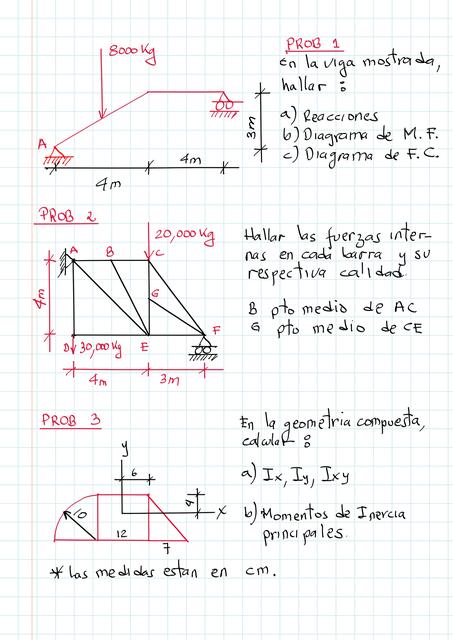 PROB 1
8000 Kg
En la viga mostrada,
hallar :
a) Reacciones
b) Diagrama de M.F.
c) Diagrama de F.C.
A
3m
4m
4m
PROB 2
20,000 Kg
Hallar las fuerzas inter-
nas en cada barra y su
respectiva calidad.
B pto medio de AC
G pto medio de CE
A
B
C
G
4m
D
30,000 Kg
E
F
4m
3m
PROB 3
En la geometria compuesta,
calcular :
a) Ix, Iy, Ixy
b) Momentos de Inercia
principales.
y
6
4
10
x
12
7
* las medidas estan en cm.